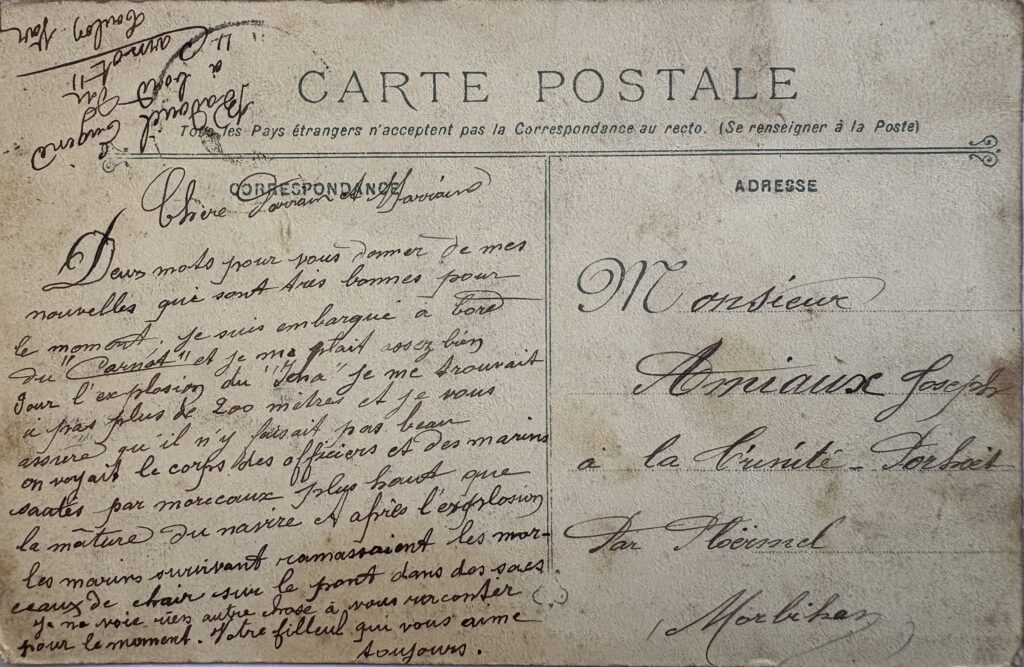 CARTE POSTALE
Tous les Pays étrangers n'acceptent pas la Correspondance au recto. (Se renseigner à la Poste)
CORRESPONDANCE
Chère Parrain et Marraine
Deux mots pour vous donner de mes
nouvelles qui sont très bonnes pour
le moment. je suis embarqué à bord
du "Carnot" et je me plait assez bien
Jour l'explosion du "Iéna" je me trouvait
à pas plus de 200 mètres et je vous
assure qu'il n'y faisait pas beau
on voyait le corps des officiers et des marins
sautés par morceaux plus haut que
la mâture du navire et après l'explosion
les marins survivant ramassaient les mor-
ceaux de chair sur le pont dans des sacs
je ne voie rien autre chose à vous raconter
pour le moment. Votre filleul qui vous aime
toujours.
Eugène
à bord du
Carnot
Toulon Var
ADRESSE
Monsieur
Amiaux Joseph
à la Trinité-Porhoët
Par Ploërmel
Morbihan